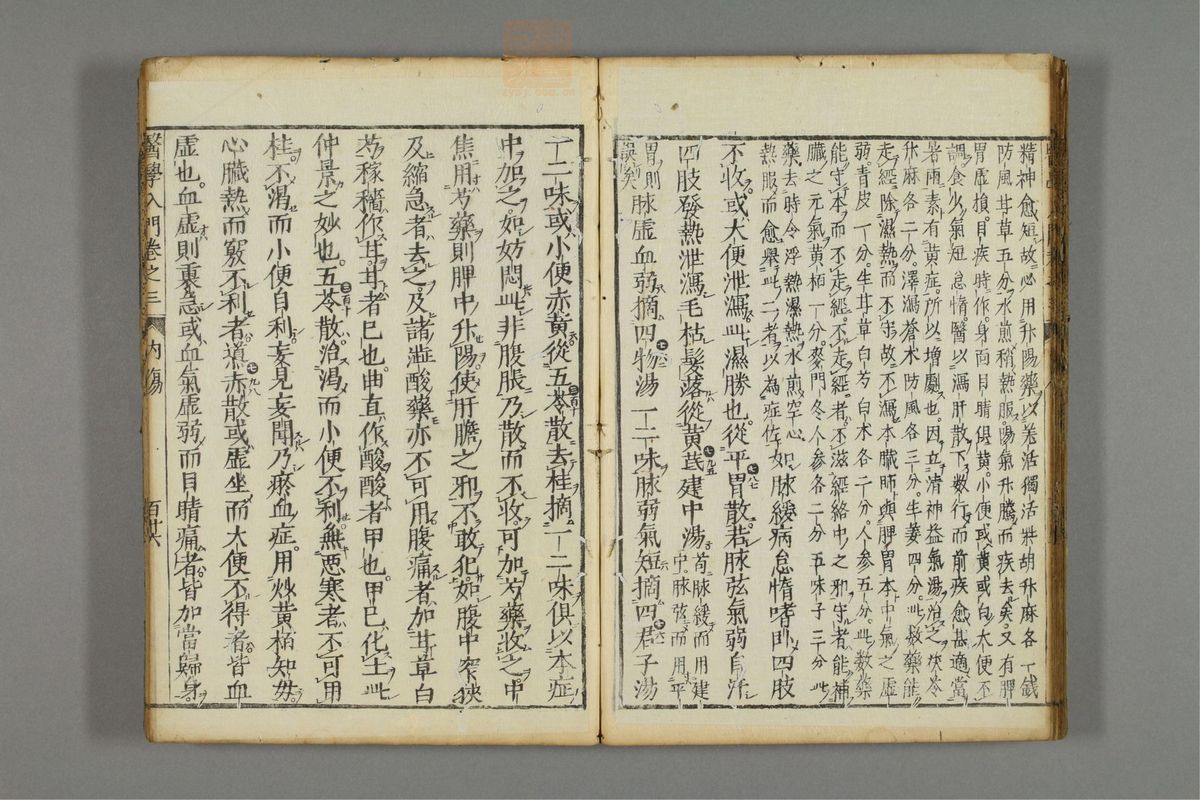 精神愈短故必用升陽藥以羌活獨活柴胡升麻各一錢
防風甘草五分水煎稍熱服陽氣升騰而疾去矣又有脾
胃虛損目疾時作身面目睛俱黃小便或黃或白大便不
調食少氣短怠惰醫以瀉肝散下數行而前疾愈甚適當
暑雨素有黃症所以增劇也因立清神益氣湯治之茯苓
升麻各二分澤瀉蒼朮防風各三分生姜四分此數藥能
走經除濕熱而不守故不瀉本臟師與脾胃本中氣之虛
弱青皮一分生甘草白芍白朮各二分人參五分此數藥
能守本而不走經不走經者不滋經絡中之邪守者能補
臟之元氣黃栢一分麥門冬人參各二分五味子三分此
藥去時令浮熱濕熱水煎空心
熱服而愈舉此二者以為症佐如脉緩病怠惰嗜卧四肢
不收或大便泄瀉此濕勝也從平胃散若脉弦氣弱自汗
四肢發熱泄瀉毛枯髮落從黃茋建中湯苟脉緩而用建
中脉弦而用平
胃則
誤矣脉虛血弱摘四物湯一二味脉弱氣短摘四君子湯
一二味或小便赤黃從五苓散去桂摘一二味俱以本症
中加之如妨悶此非腹脹乃散而不收可加芍藥收之中
焦用芍藥則脾中升陽使肝膽之邪不敢犯如腹中窄狹
及縮急者去之及諸澁酸藥亦不可用腹痛者加甘草白
芍稼穡作甘甘者已也曲直作酸酸者甲也甲已化土此
仲景之妙也五苓散治渴而小便不利無惡寒者不可用
桂不渴而小便自利妄見妄聞乃瘀血症用炒黃栢知毋
心臟熱而竅不利者導赤散或虛坐而大便不得者皆血
虛也血虛則裏急或血氣虛弱而目睛痛者皆加當歸身
醫學入門卷之三 內傷 百廿六